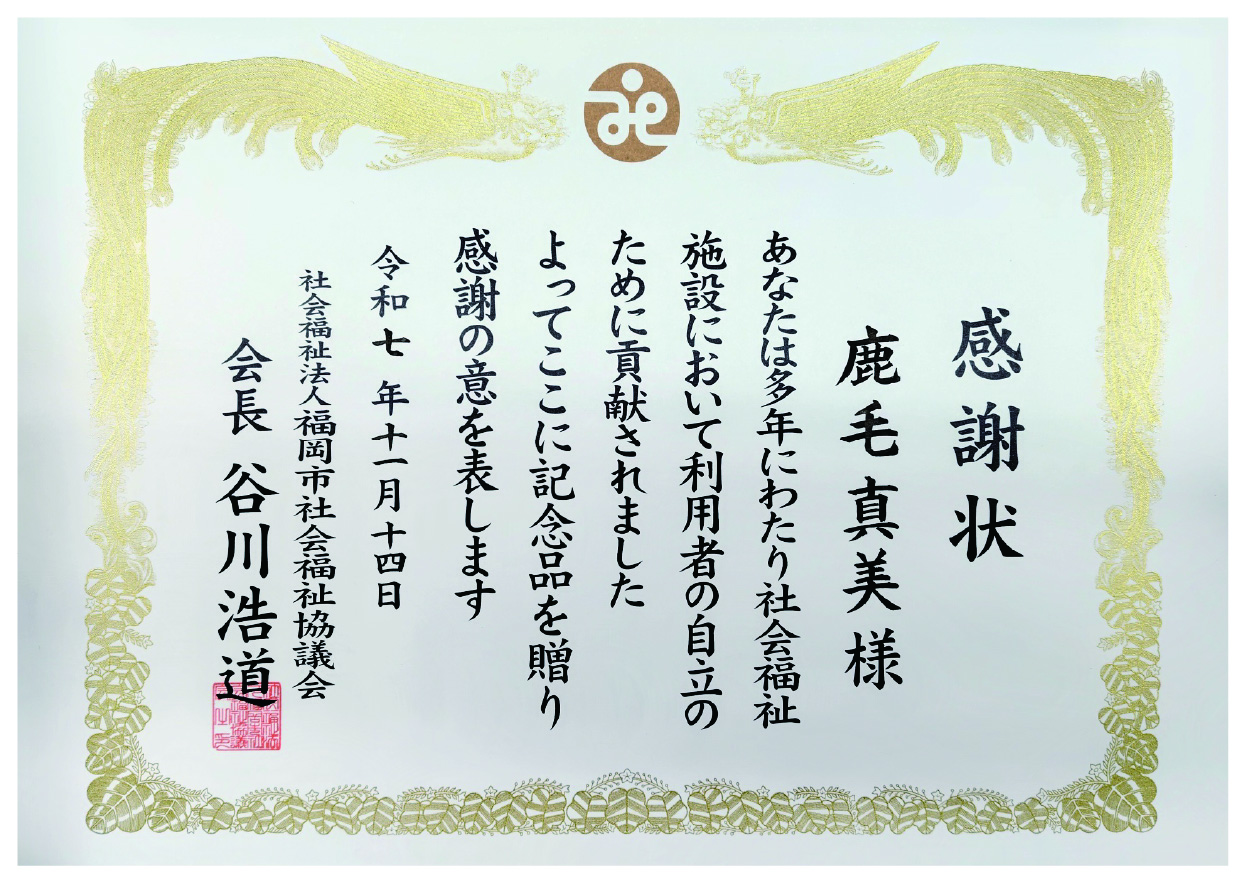 感謝状
鹿毛真美様
あなたは多年にわたり社会福祉
施設において利用者の自立の
ために貢献されました
よってここに記念品を贈り
感謝の意を表します
令和七年十一月十四日
社会福祉法人福岡市社会福祉協議会
会長 谷川浩道